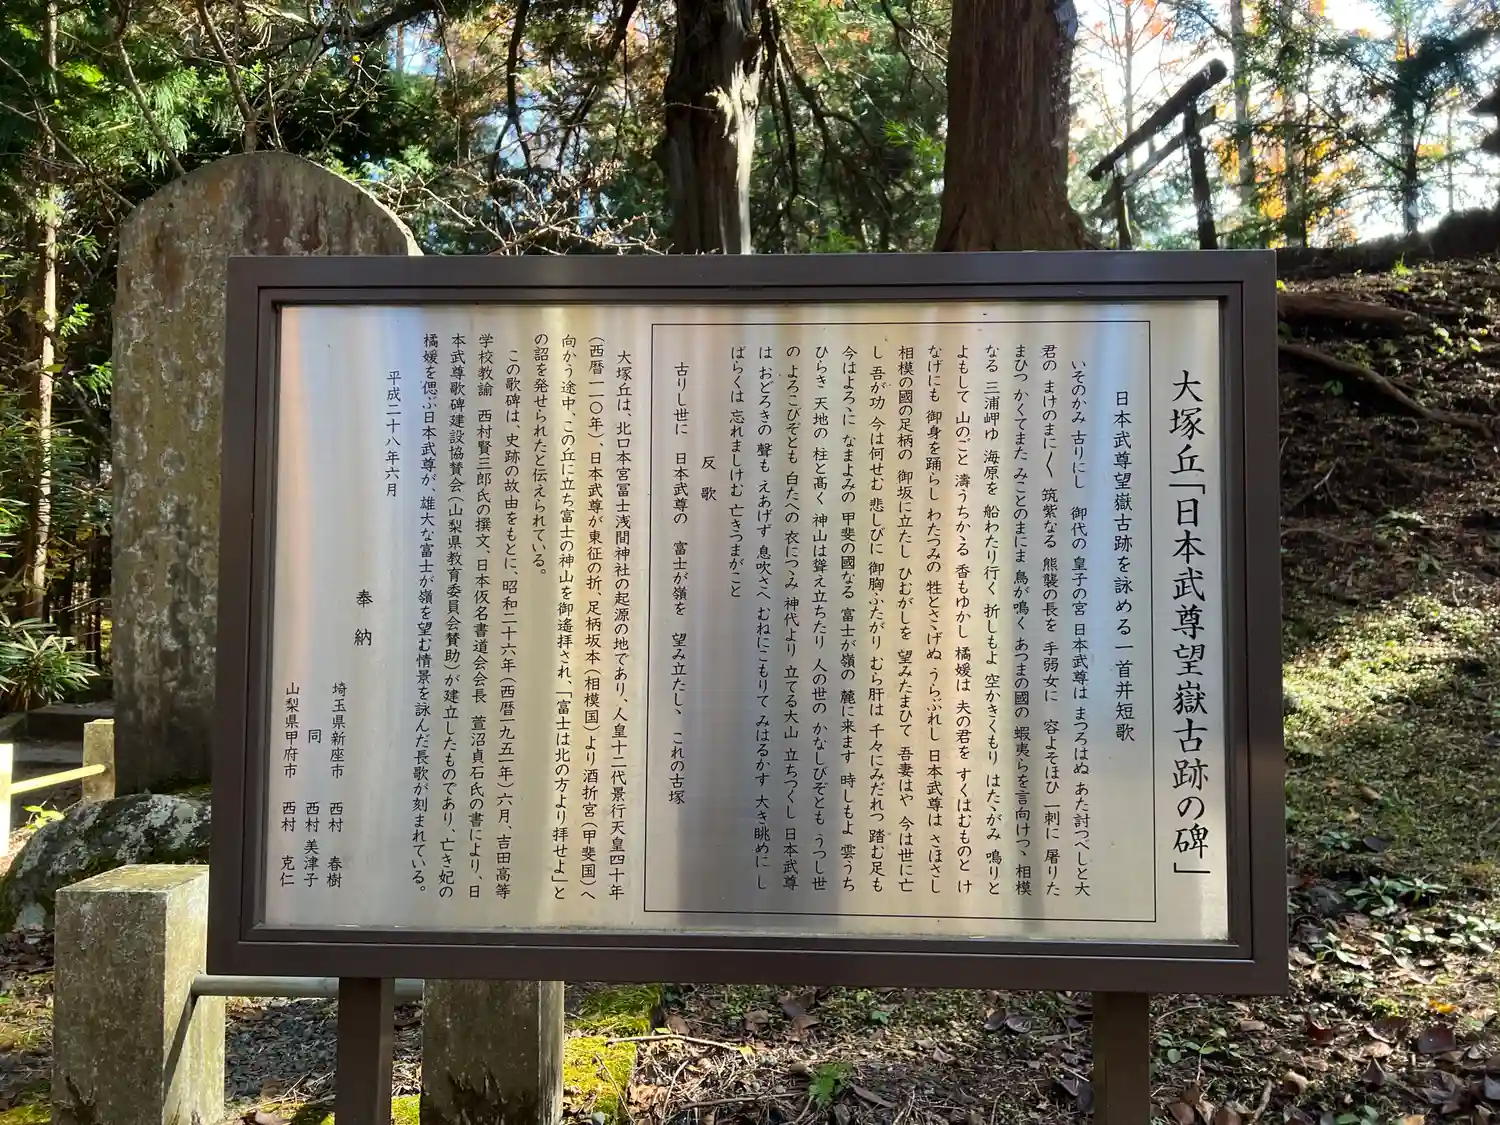 大塚丘「日本武尊望嶽古跡の碑」
日本武尊望嶽古跡を詠める一首并短歌
いそのかみ 古りにし 御代の 皇子の宮 日本武尊は まつろはぬ あた討つべしと大
君の まけのまに〱 筑紫なる 熊襲の長を 手弱女に 容よそほひ 一刺に 屠りた
まひつ かくてまた みことのまにま 鳥が鳴く あつまの國の 蝦夷らを言向けつゝ 相模
なる 三浦岬ゆ 海原を 船わたり行く 折しもよ 空かきくもり はたゝがみ 鳴りと
よもして 山のごと 濤うちかゝる 香もゆかし 橘媛は 夫の君を すくはむものと け
なげにも 御身を踊らし わたつみの 牲とさゝげぬ うらぶれし 日本武尊は さほさし
相模の國の足柄の 御坂に立たし ひむがしを 望みたまひて 吾妻はや 今は世に亡
し 吾が功 今は何せむ 悲しびに 御胸ふたがり むら肝は 千々にみだれつ 踏む足も
今はよろゝに なまよみの 甲斐の國なる 富士が嶺の 麓に来ます 時しもよ 雲うち
ひらき 天地の 柱と髙く 神山は聳え立ちたり 人の世の かなしびぞとも うつし世
の よろこびぞとも 白たへの 衣につゝみ 神代より 立てる大山 立ちつくし 日本武尊
は おどろきの 聲も えあげず 息吹さへ むねにこもりて みはるかす 大き眺めに し
ばらくは 忘れましけむ 亡きつまがこと
反 歌
古りし世に 日本武尊の 富士が嶺を 望み立たしゝ これの古塚
大塚丘は、北口本宮冨士浅間神社の起源の地であり、人皇十二代景行天皇四十年
（西暦一一〇年）、日本武尊が東征の折、足柄坂本（相模国）より酒折宮（甲斐国）へ
向かう途中、この丘に立ち富士の神山を御遙拝され、「富士は北の方より拝せよ」と
の詔を発せられたと伝えられている。
この歌碑は、史跡の故由をもとに、昭和二十六年（西暦一九五一年）六月、吉田高等
学校教諭 西村賢三郎氏の撰文、日本仮名書道会会長 萱沼貞石氏の書により、日
本武尊歌碑建設協賛会（山梨県教育委員会賛助）が建立したものであり、亡き妃の
橘媛を偲ぶ日本武尊が、雄大な富士が嶺を望む情景を詠んだ長歌が刻まれている。
平成二十八年六月
奉 納
埼玉県新座市 西村 春樹
同 西村 美津子
山梨県甲府市 西村 克仁